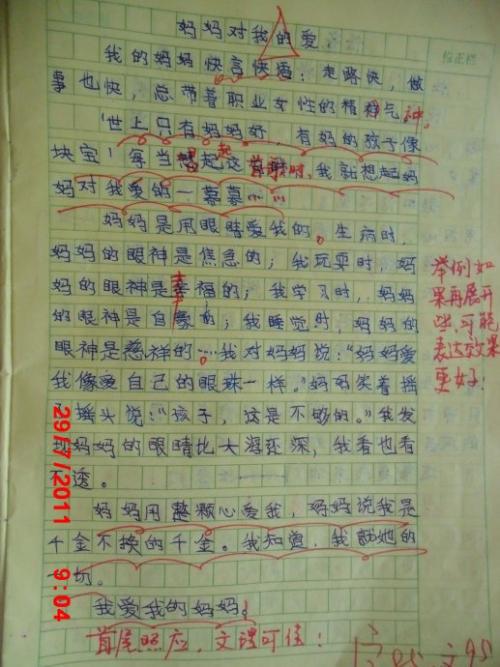 妈妈对我的爱
我的妈妈快言快语：走路快，做
事也快，总带着职业女性的精气神。
“世上只有妈妈好，有妈的孩子像
块宝！每当想起这首歌时，我就想起妈
妈对我爱的一幕幕……
妈妈是用眼睛爱我的。生病时，
妈妈的眼神是焦急的；我玩耍时，妈
妈的眼神是幸福的；我学习时，妈妈
的眼神是自豪的；我睡觉时，妈妈的
眼神是慈祥的…我对妈妈说：“妈妈爱
我像爱自己的眼珠一样。”妈妈笑着摇
摇头说：“孩子，这是不够的。”我发
现妈妈的眼睛比大海还深，我看也看
不透。
妈妈用整颗心爱我，妈妈说我是
千金不换的千金。我知道，我就她的
一切。
我爱我的妈妈！
批正栏
举例如
果再展开
些，可能
表达效果
更好！
首尾照应，文理可佳！
29/7/2011 9:04